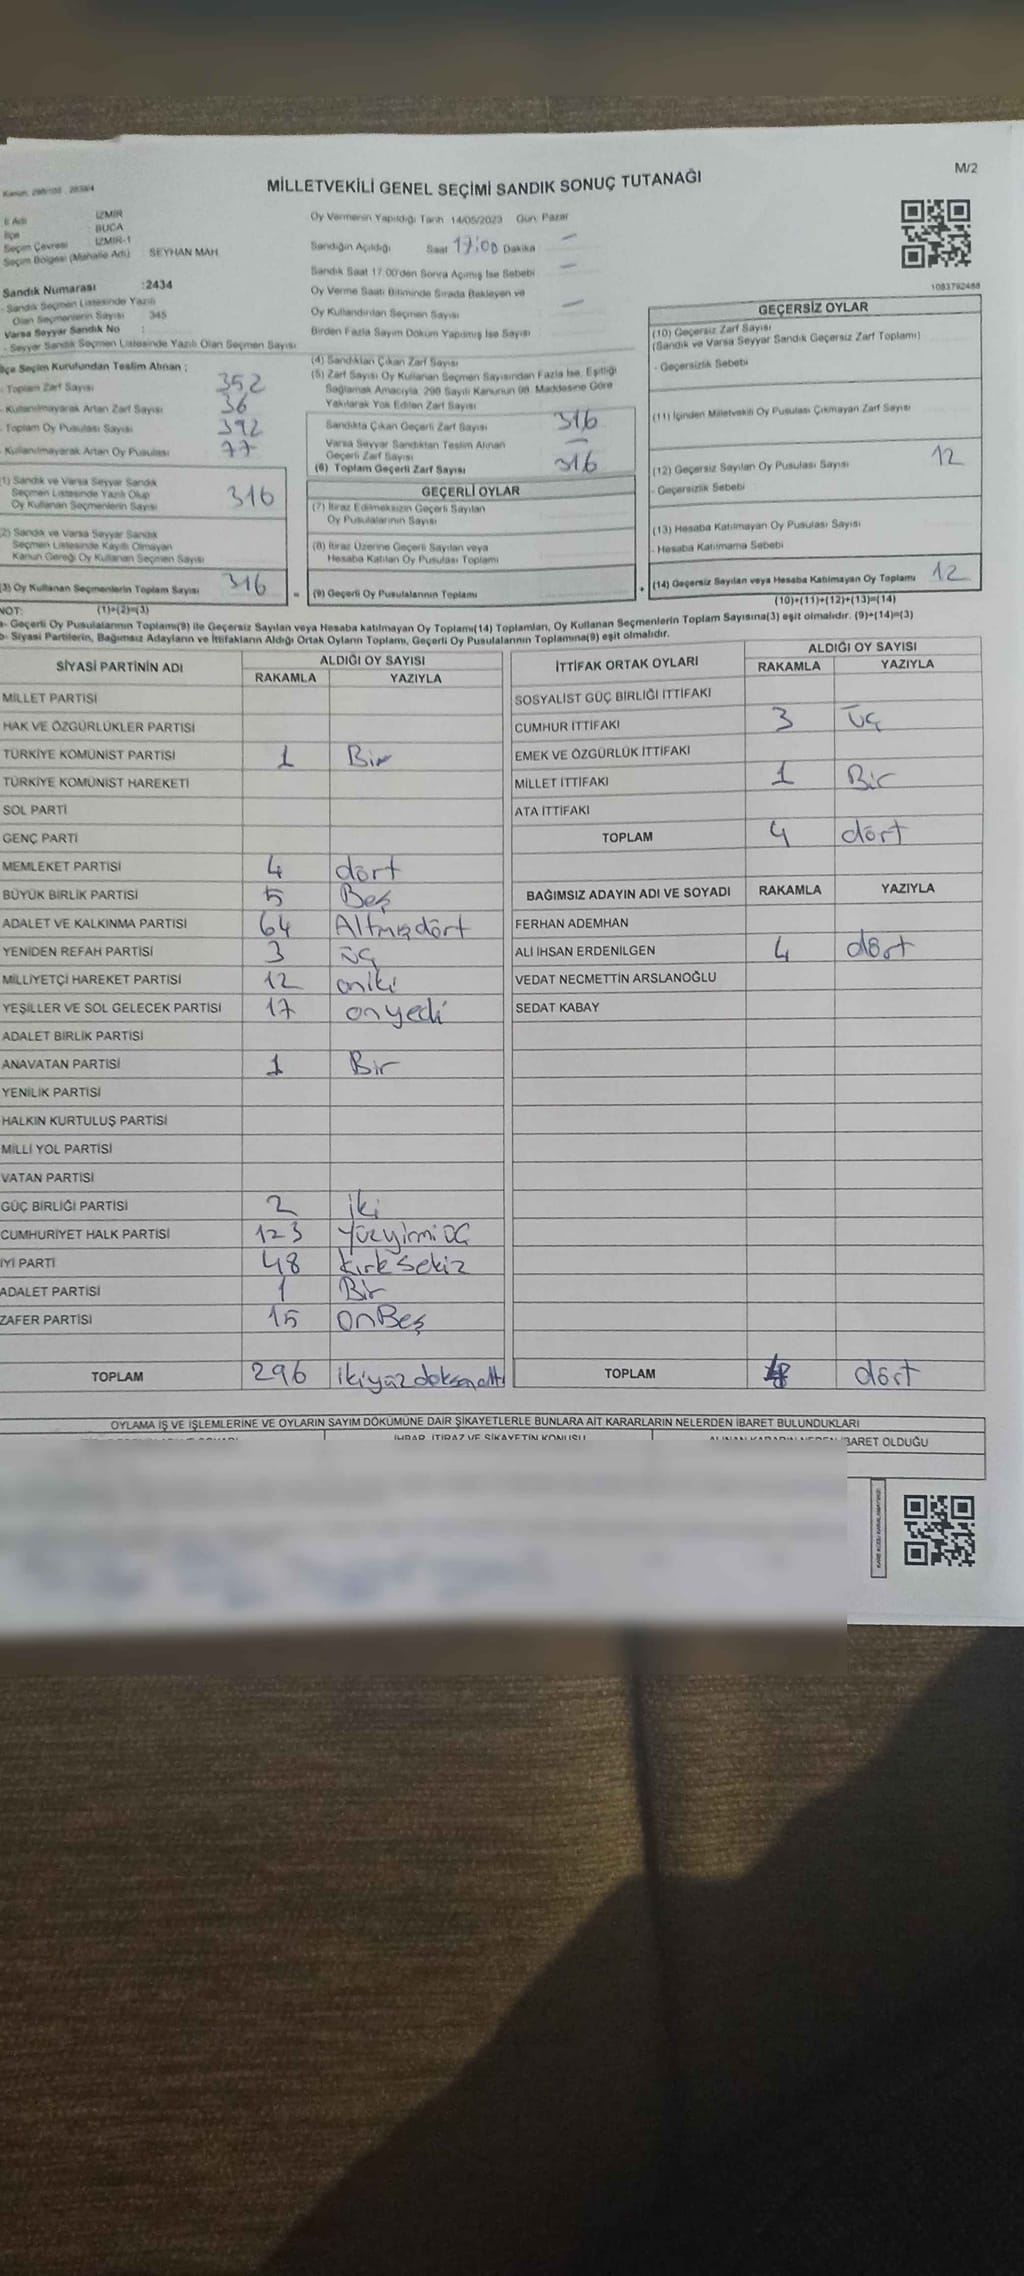 M/2
MİLLETVEKİLİ GENEL SEÇİMİ SANDIK SONUÇ TUTANAĞI
İl Adı : İZMİR
İlçe : BUCA
Seçim Çevresi : İZMİR-1
Seçim Bölgesi (Mahalle Adı) SEYHAN MAH.
Sandık Numarası :2434
- Sandık Seçmen Listesinde Yazılı
Olan Seçmenlerin Sayısı 345
Varsa Seyyar Sandık No :
- Seyyar Sandık Seçmen Listesinde Yazılı Olan Seçmen Sayısı
Oy Vermenin Yapıldığı Tarih 14/05/2023 Gün: Pazar
Sandığın Açıldığı Saat 17:00 Dakika —
Sandık Saat 17.00'den Sonra Açılmış İse Sebebi —
Oy Verme Saati Bitiminde Sırada Bekleyen ve
Oy Kullandırılan Seçmen Sayısı —
Birden Fazla Sayım Döküm Yapılmış İse Sayısı
1083792488
İlçe Seçim Kurulundan Teslim Alınan :
- Toplam Zarf Sayısı 352
- Kullanılmayarak Artan Zarf Sayısı 36
- Toplam Oy Pusulası Sayısı 392
- Kullanılmayarak Artan Oy Pusulası 77
(1) Sandık ve Varsa Seyyar Sandık
Seçmen Listesinde Yazılı Olup
Oy Kullanan Seçmenlerin Sayısı 316
(2) Sandık ve Varsa Seyyar Sandık
Seçmen Listesinde Kayıtlı Olmayan
Kanun Gereği Oy Kullanan Seçmen Sayısı
(3) Oy Kullanan Seçmenlerin Toplam Sayısı 316
(4) Sandıktan Çıkan Zarf Sayısı
(5) Zarf Sayısı Oy Kullanan Seçmen Sayısından Fazla İse, Eşitliği
Sağlamak Amacıyla, 298 Sayılı Kanunun 98. Maddesine Göre
Yakılarak Yok Edilen Zarf Sayısı
Sandıkta Çıkan Geçerli Zarf Sayısı 316
Varsa Seyyar Sandıktan Teslim Alınan
Geçerli Zarf Sayısı —
(6) Toplam Geçerli Zarf Sayısı 316
GEÇERLİ OYLAR
(7) İtiraz Edilmeksizin Geçerli Sayılan
Oy Pusulalarının Sayısı
(8) İtiraz Üzerine Geçerli Sayılan veya
Hesaba Katılan Oy Pusulası Toplamı
= (9) Geçerli Oy Pusulalarının Toplamı +
GEÇERSİZ OYLAR
(10) Geçersiz Zarf Sayısı
(Sandık ve Varsa Seyyar Sandık Geçersiz Zarf Toplamı)
- Geçersizlik Sebebi
(11) İçinden Milletvekili Oy Pusulası Çıkmayan Zarf Sayısı
(12) Geçersiz Sayılan Oy Pusulası Sayısı 12
- Geçersizlik Sebebi
(13) Hesaba Katılmayan Oy Pusulası Sayısı
- Hesaba Katılmama Sebebi
(14) Geçersiz Sayılan veya Hesaba Katılmayan Oy Toplamı 12
NOT: (1)+(2)=(3) (10)+(11)+(12)+(13)=(14)
a- Geçerli Oy Pusulalarının Toplamı(9) ile Geçersiz Sayılan veya Hesaba katılmayan Oy Toplamı(14) Toplamları, Oy Kullanan Seçmenlerin Toplam Sayısına(3) eşit olmalıdır. (9)+(14)=(3)
b- Siyasi Partilerin, Bağımsız Adayların ve İttifakların Aldığı Ortak Oyların Toplamı, Geçerli Oy Pusulalarının Toplamına(9) eşit olmalıdır.
SİYASİ PARTİNİN ADI ALDIĞI OY SAYISI
RAKAMLA YAZIYLA
MİLLET PARTİSİ
HAK VE ÖZGÜRLÜKLER PARTİSİ
TÜRKİYE KOMÜNİST PARTİSİ 1 Bir
TÜRKİYE KOMÜNİST HAREKETİ
SOL PARTİ
GENÇ PARTİ
MEMLEKET PARTİSİ 4 dört
BÜYÜK BİRLİK PARTİSİ 5 Beş
ADALET VE KALKINMA PARTİSİ 64 Altmışdört
YENİDEN REFAH PARTİSİ 3 üç
MİLLİYETÇİ HAREKET PARTİSİ 12 oniki
YEŞİLLER VE SOL GELECEK PARTİSİ 17 onyedi
ADALET BİRLİK PARTİSİ
ANAVATAN PARTİSİ 1 Bir
YENİLİK PARTİSİ
HALKIN KURTULUŞ PARTİSİ
MİLLİ YOL PARTİSİ
VATAN PARTİSİ
GÜÇ BİRLİĞİ PARTİSİ 2 iki
CUMHURİYET HALK PARTİSİ 123 Yüzyirmi üç
İYİ PARTİ 48 kırksekiz
ADALET PARTİSİ 1 Bir
ZAFER PARTİSİ 15 OnBeş
TOPLAM 296 ikiyüzdoksanaltı
İTTİFAK ORTAK OYLARI ALDIĞI OY SAYISI
RAKAMLA YAZIYLA
SOSYALİST GÜÇ BİRLİĞİ İTTİFAKI
CUMHUR İTTİFAKI 3 üç
EMEK VE ÖZGÜRLÜK İTTİFAKI
MİLLET İTTİFAKI 1 Bir
ATA İTTİFAKI
TOPLAM 4 dört
BAĞIMSIZ ADAYIN ADI VE SOYADI RAKAMLA YAZIYLA
FERHAN ADEMHAN
ALİ İHSAN ERDENİLGEN 4 dört
VEDAT NECMETTİN ARSLANOĞLU
SEDAT KABAY
TOPLAM dört
OYLAMA İŞ VE İŞLEMLERİNE VE OYLARIN SAYIM DÖKÜMÜNE DAİR ŞİKAYETLERLE BUNLARA AİT KARARLARIN NELERDEN İBARET BULUNDUKLARI
İHBAR, İTİRAZ VE ŞİKAYETİN KONUSU
ALINAN KARARIN NEDEN İBARET OLDUĞU